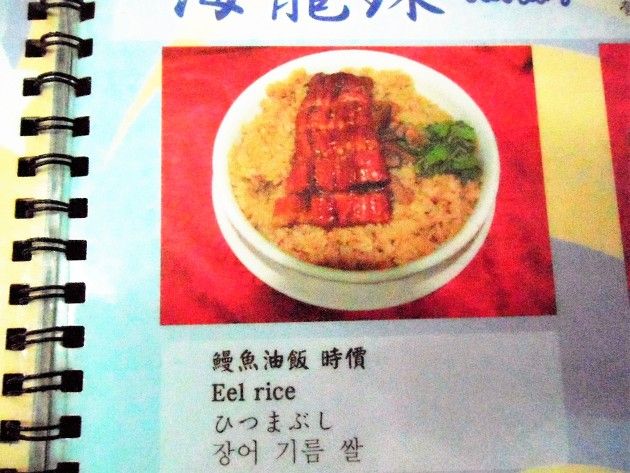 海龍珠
鰻魚油飯 時價
Eel rice
ひつまぶし
장어 기름 쌀